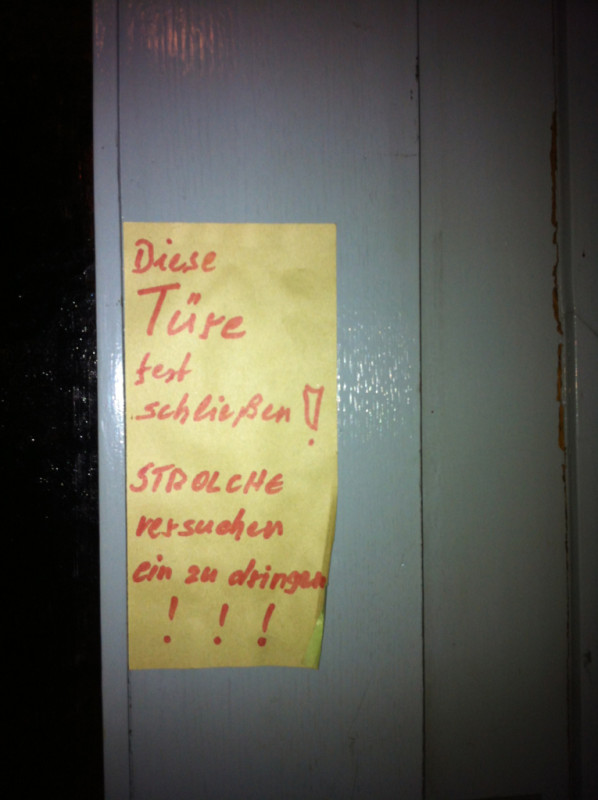 Diese
Türe
fest
schließen!
STROLCHE
versuchen
ein zu dringen
! ! !